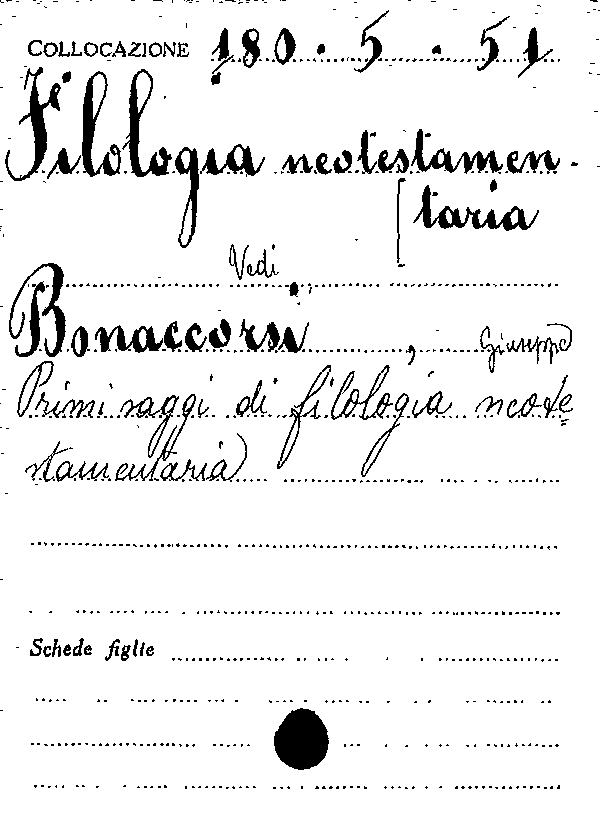 COLLOCAZIONE 180 . 5 . 51
Filologia neotestamen-
[taria
Vedi
Bonaccorsi, Giuseppe
Primi saggi di filologia neote=
stamentaria
Schede figlie